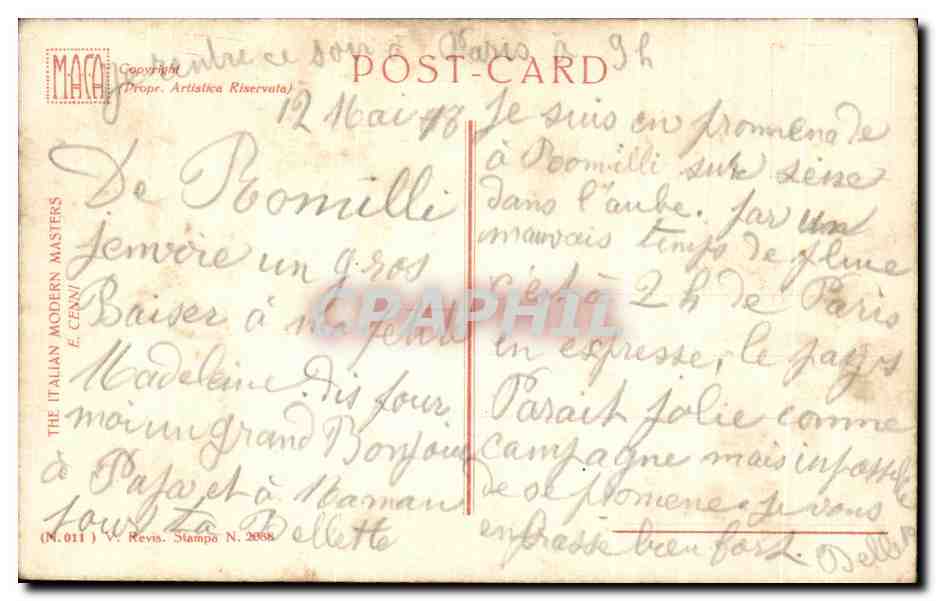 Je rentre ce soir à Paris à 9h
MACA
Copyright
(Propr. Artistica Riservata)
POST-CARD
12 Mai 18
De Romilli
jenvoie un gros
Baiser à
Madeleine. Dis pour
moi un grand Bonjour
à Papa et à Maman
pour ta Bellette
je suis en promenade
à Romilli sur seine
dans l'aube. par un
mauvais temps de pluie
c'est à 2 h de Paris
en espresse, le pays
Parait jolie comme
campagne mais impossible
de se promene. je vous
embrasse bien fort.
THE ITALIAN MODERN MASTERS
E. CENNI
(N. 011) V. Revis. Stampa N. 2098
CPAPHIL